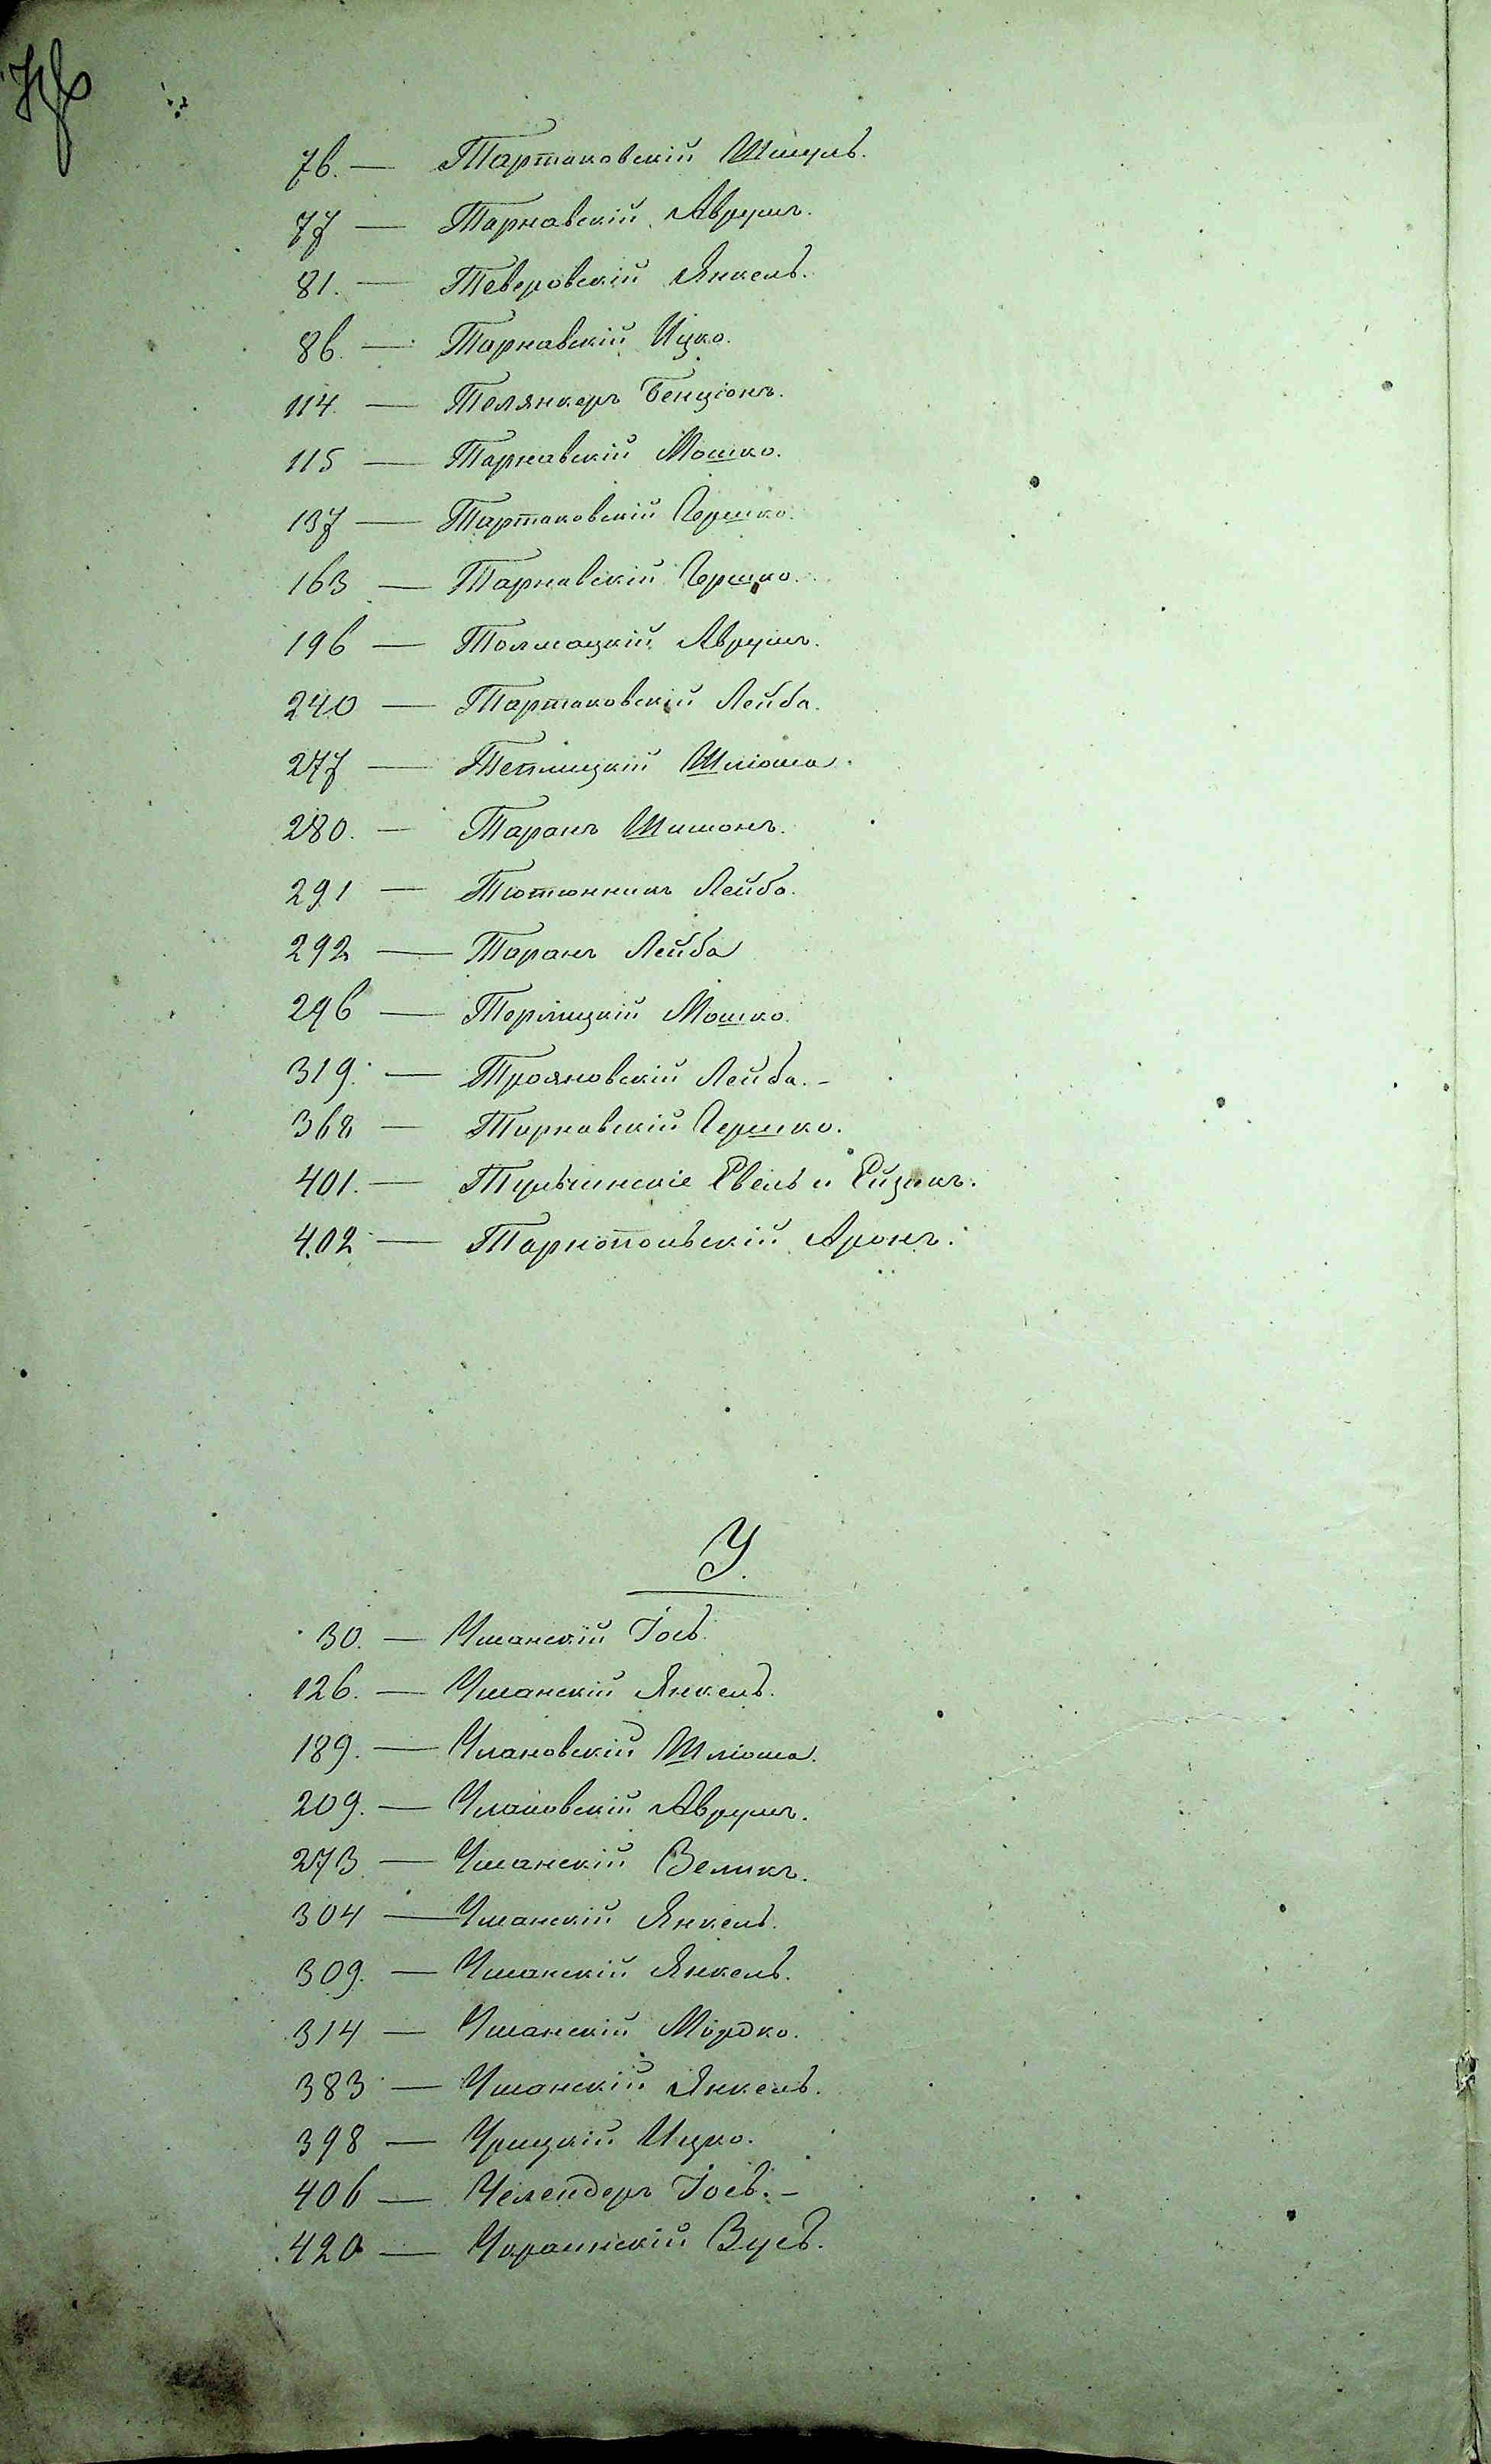 76. — Тартаковскій Шмуль.
77 — Тарнавскій Аврумъ.
81. — Теверовскій Янкель.
86. — Тарнавскій Ицко.
114. — Телянкеръ Бенціонъ.
115 — Тарнавскій Мошко.
137 — Тартаковскій Гершко.
163 — Тарнавскій Гершко.
196 — Толмацкій Аврумъ.
240 — Тартаковскій Лейба.
277 — Теплицкій Шліома.
280. — Таранъ Шимонъ.
291 — Тютюнникъ Лейба.
292 — Таранъ Лейба
296 — Терлицкій Мошко.
319. — Трояновскій Лейба. -
368 — Тарнавскій Гершко.
401. — Тульчинскіе Евель и Ейзикъ.
402 — Тарнопольскій Аронъ.
У.
30. — Уманскій Іось.
126. — Уманскій Янкель.
189. — Улановскій Шліома.
209. — Улановскій Аврумъ.
273 — Уманскій Великъ.
304 — Уманскій Янкель.
309. — Уманскій Янкель.
314 — Уманскій Мордко.
383 — Уманскій Янкель.
398 — Урицкій Ицко.
406 — Улендеръ Іось. -
420 — Украинскій Зусь.